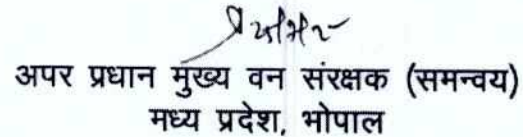 अपर प्रधान मुख्य वन संरक्षक (समन्वय)
मध्य प्रदेश, भोपाल